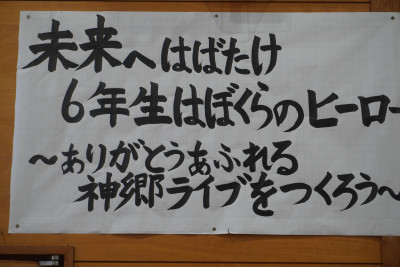 未来へはばたけ
6年生はぼくらのヒーロー
～ありがとうあふれる
神郷ライブをつくろう～